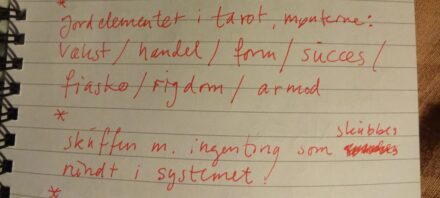 *
Jordelementet i tarot, mønterne:
Vækst / handel / form / succes /
fiasko / rigdom / armod
*
skuffen m. ingenting som skubbes
rundt i systemet.
*